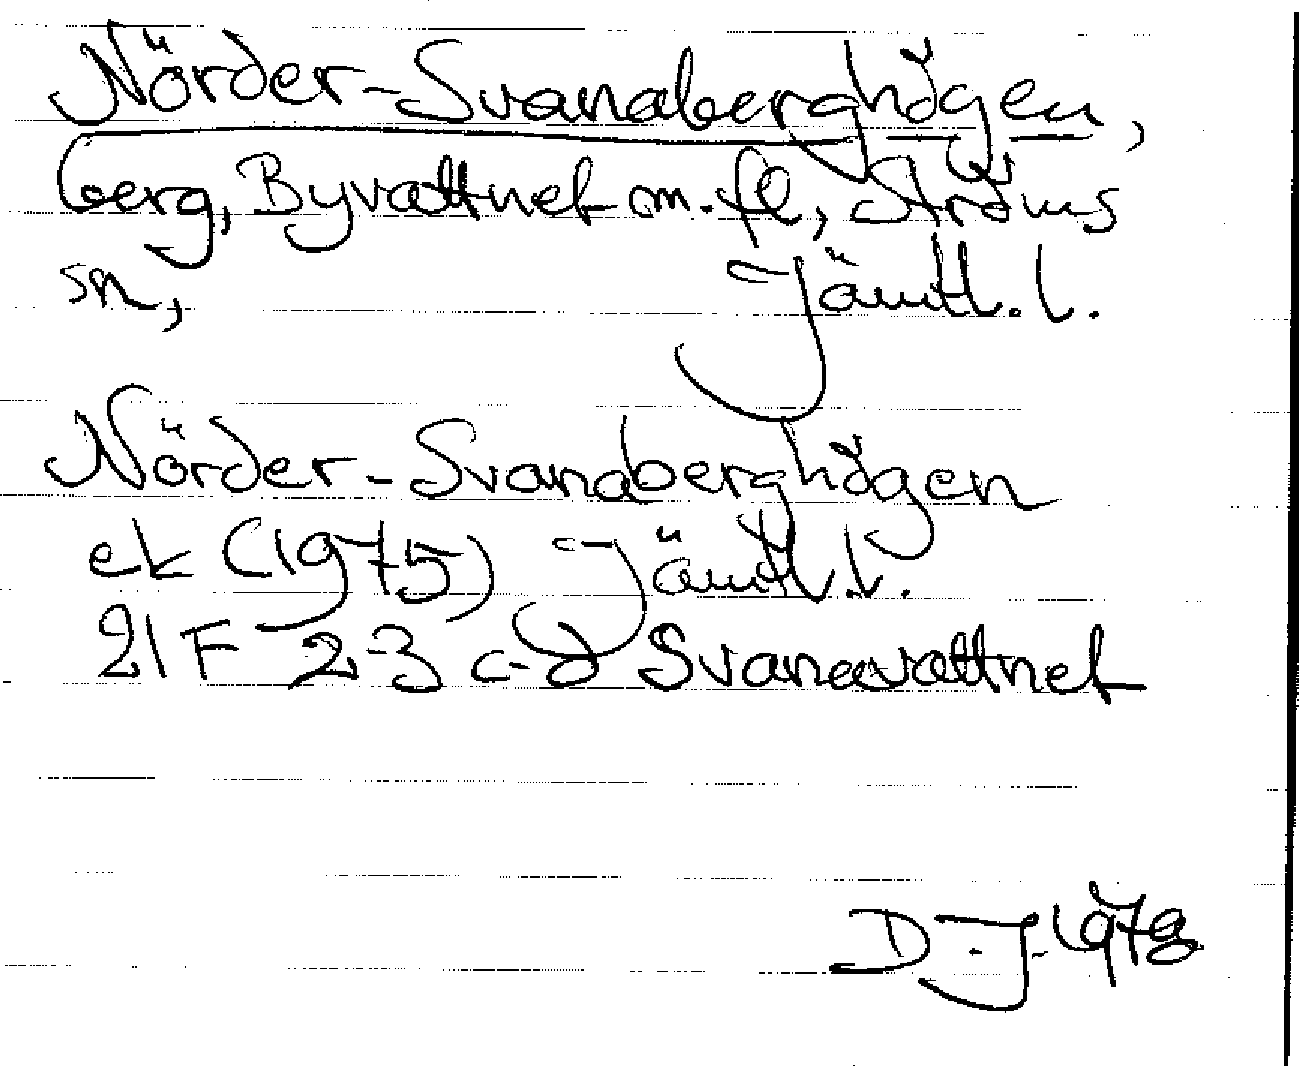 Nörder-Svanaberghögen,
berg, Byvattnet m.fl, Ströms
sn, Jämtl. l.
Nörder-Svanaberghögen
ek (1975) Jämtl. l.
21 F 2-3 c-d Svanavattnet
D.J. 1978